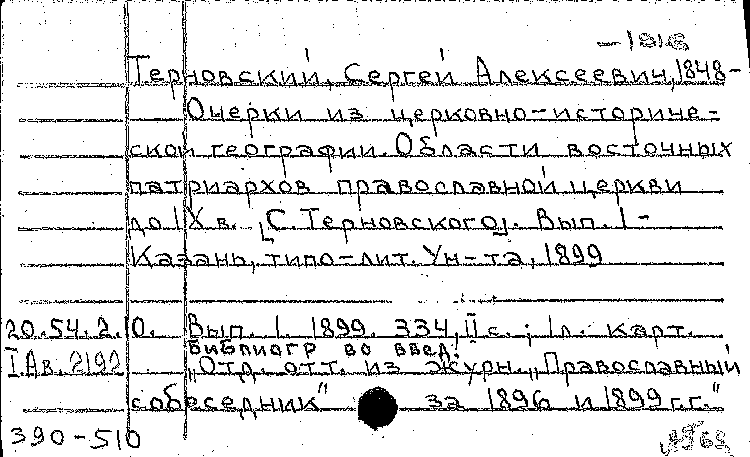 –1916
Терновский, Сергей Алексеевич, 1848–
Очерки из церковно-историче-
ской географии. Области восточных
патриархов православной церкви
до IX в. [С. Терновского]. Вып. I–
Казань, типо-лит. Ун-та, 1899
20.54.2.10. Вып. I. 1899. 334, II с.; 1 л. карт.
Библиогр во введ.
I.Ав.2192 „Отд. отт. из журн. „Православный
собеседник" за 1896 и 1899 г.г."
390–510